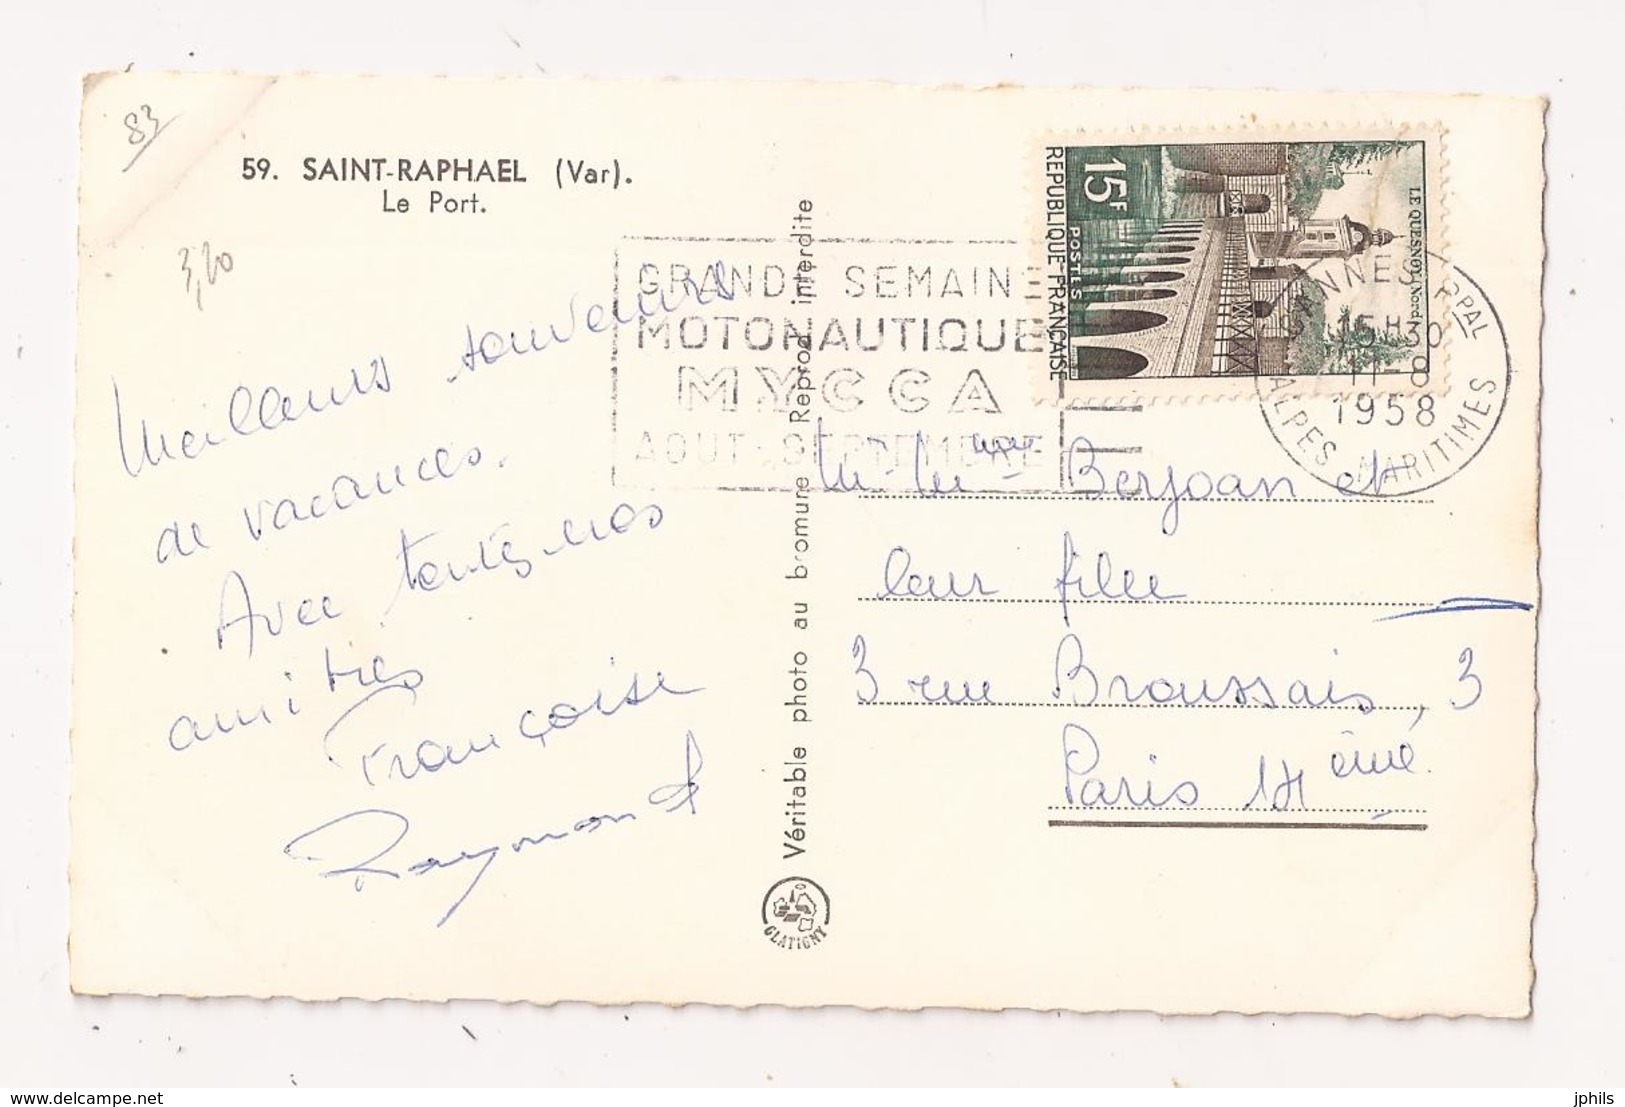 83
59. SAINT-RAPHAEL (Var).
Le Port.
3,20
Meilleurs souvenirs
de vacances.
Avec toutes nos
amitiés
Françoise
Raymond
Véritable photo au bromure Reprod. interdite
GLATIGNY
GRANDE SEMAINE
MOTONAUTIQUE
MYCCA
AOUT-SEPTEMBRE
15F
POSTES
REPUBLIQUE FRANÇAISE
LE QUESNOY (Nord)
CANNES Ppal
15H30
11-8
1958
ALPES MARITIMES
Mr Mme Berjoan et
leur fille
3 rue Broussais, 3
Paris 14ème
delcampe.net
jphils